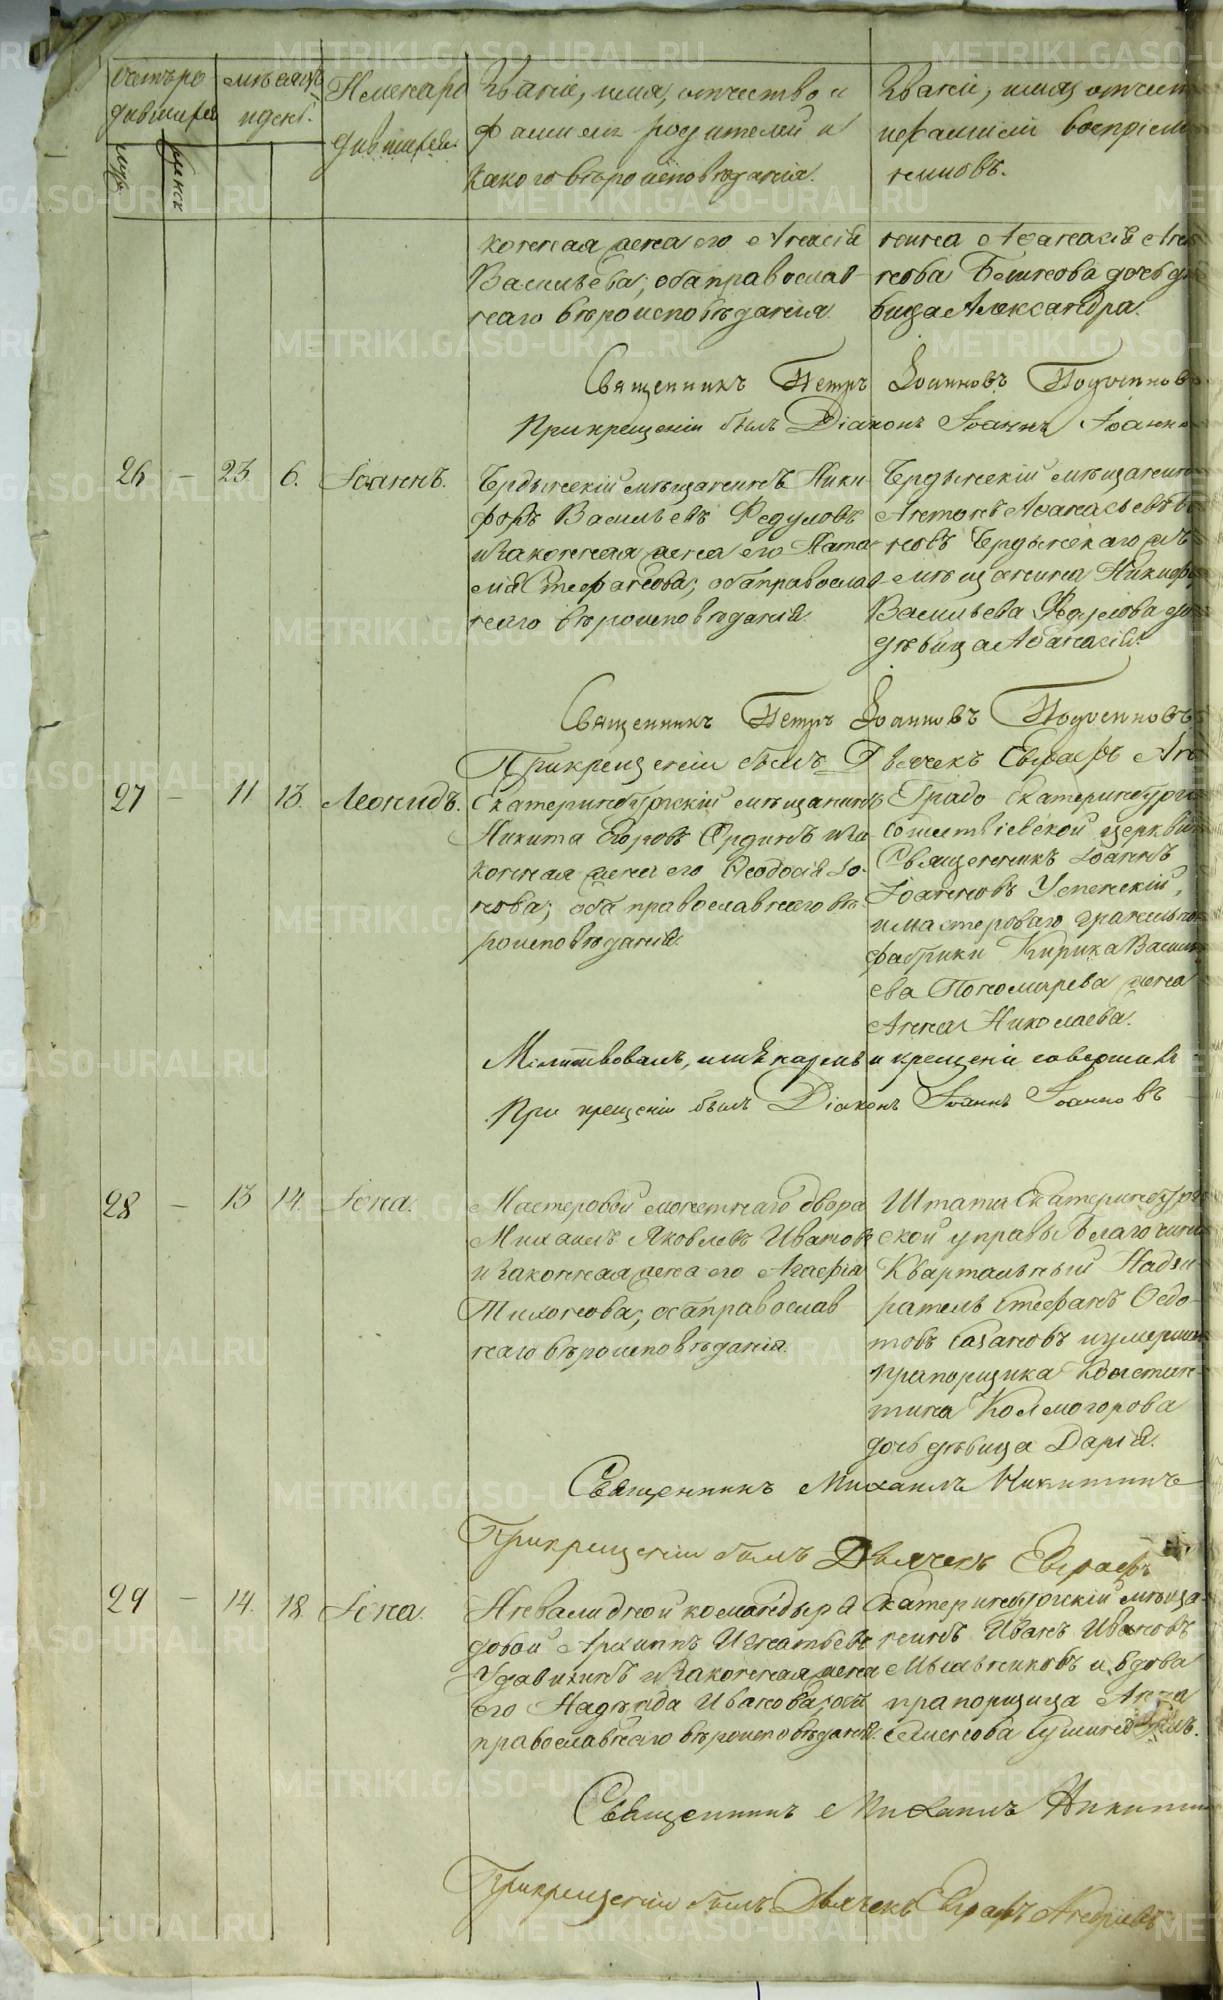 Счетъ ро-
дившихся
мѣсяцъ
и день.
Имена ро
дившихся.
Званіе, имя, отчество и
фамилія родителей и
какого вѣроисповѣданія.
Званіе, имя, отчест
и фамиліи воспріем
никовъ.
муж
женск
конная жена его Анасія
Васильева, оба православ-
наго вѣроисповѣданія.
нина Аѳанасія Анти
пова Бѣликова дочь дѣ
вица Александра.
Священникъ Петръ Іоанновъ
При крещеніи былъ Діаконъ Іоаннъ Іоанно
26 – 23 6. Іоаннъ.
мѣщанинъ Ники
форъ Васильевъ Федуловъ
и законная жена его Ната
лія Стефанова, оба православ
наго вѣроисповѣданія.
мѣщанин
Антонъ Аѳанасьевъ
новъ
мѣщанина Никифор
Васильева Федулова до
дѣвица Аѳанасія.
Священникъ Петръ Іоанновъ
При крещеніи былъ Дьячекъ Евграфъ Ан
27 – 11 13. Леонидъ.
Екатеринбургскій мѣщанинъ
Никита Егоровъ Ординъ и за
конная жена его Ѳеодосія Іо-
нова; оба православнаго вѣ-
роисповѣданія.
Градо Екатеринбург
сошествіевской церкви
Священникъ Іоаннъ
Іоанновъ Успенскій,
и мастероваго гранильной
фабрики Кирика Василь
ева Пономарева жена
Анна Николаева.
Молитвовалъ, имя нарекъ и крещеніе совершилъ
При крещеніи былъ Діаконъ Іоаннъ Іоанновъ
28 – 13 14. Іона.
Мастеровой монетнаго двора
Михаилъ Яковлевъ Ивановъ
и законная жена его Агафія
Тихонова, оба православ
наго вѣроисповѣданія.
Штата Екатеринбург
ской управы Благочинія
Квартальный Надзи
ратель Стефанъ Ѳедо-
товъ Казановъ и умерша
прапорщика Констан-
тина Колмогорова
дочь дѣвица Дарія.
Священникъ Михаилъ Никитинъ
При крещеніи былъ Дьячекъ Евграфъ
29 – 14. 18. Іона.
Инвалидной команды ря
довой Архиппъ Игнатьевъ
и законная жена
его Надежда Иванова, оба
православнаго вѣроисповѣданія.
Екатеринбургскій мѣща-
нинъ Иванъ Ивановъ
Мыльниковъ и вдова
прапорщица Анна
Семенова
Священникъ Михаилъ Никитин
При крещеніи былъ Дьячекъ Евграфъ Андріевъ
METRIKI.GASO-URAL.RU